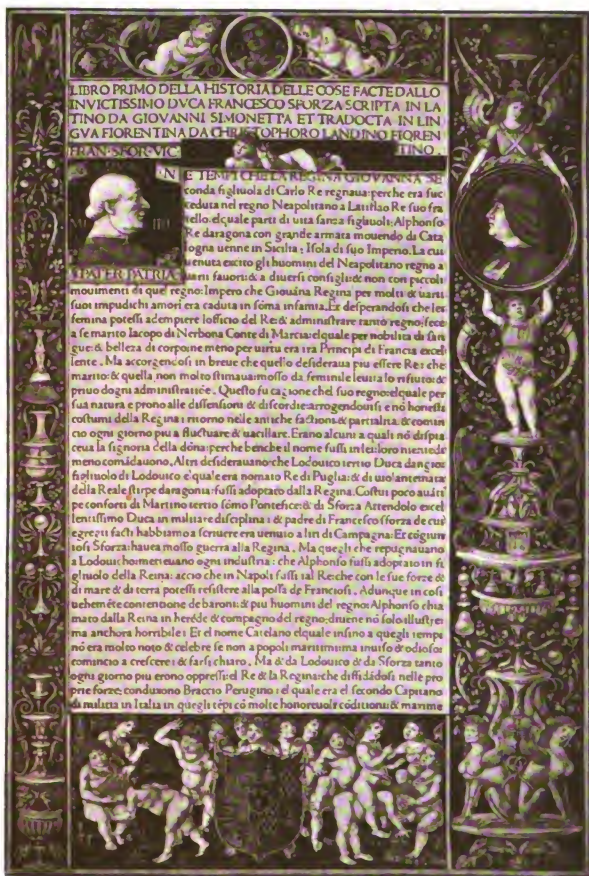 LIBRO PRIMO DELLA HISTORIA DELLE COSE FACTE DALLO
INVICTISSIMO DVCA FRANCESCO SFORZA SCRIPTA IN LA
TINO DA GIOVANNI SIMONETTA ET TRADOCTA IN LIN
GVA FIORENTINA DA CHRISTOPHORO LANDINO FIOREN
TINO
FRAN·SFOR·VIC
PATER PATRIA
N E TEMPI CHE LA REGINA GIOVANNA SE
conda figliuola di Carlo Re regnaua: perche era suc
ceduta nel regno Neapolitano a Latislao Re suo fra
tello. elquale parti di uita sanza figliuoli: Alphonso
Re daragona con grande armata mouendo di Cata
logna uenne in Sicilia: Isola di suo Imperio. La cui
uenuta excito gli huomini del Neapolitano regno a
uarii fauori: & a diuersi consigli: & non con piccoli
mouimenti di quel regno: Impero che Giouāna Regina per molti & uarii
suoi impudichi amori era caduta in sōma infamia. Et desperandosi che les
femina potessi adempiere lofficio del Re: & administrare tanto regno: fece
a se marito Iacopo di Nerbona Conte di Marcia: elquale per nobilita di san
gue: & belleza di corpo: ne meno per uirtu era tra Principi di Francia excel
lente. Ma accorgendosi in breue che quello desideraua piu essere Re: che
marito: & quella non molto stimaua: mosso da feminile leuita lo rifiuto: &
priuo dogni administratiōe. Questo fu cagione chel suo regno: elquale per
sua natura e prono alle dissensioni & discordie: arrogendouisi e nō honesti
costumi della Regina: ritorno nelle antiche factioni: & partialita. & comin
cio ogni giorno piu a fluctuare & uacillare. Erano alcuni a quali nō dispia
ceua la signoria della dōna: perche benche il nome fussi in lei: loro niente di
meno comādauono. Altri desiderauano: che Lodouico tertio Duca dangios
figliuolo di Lodouico elquale era nomato Re di Puglia: & di uolantenata
della Reale stirpe daragonia: fussi adoptato dalla Regina. Costui poco auāti
pe conforti di Martino tertio sōmo Pontefice: & di Sforza Attendolo excel
lentissimo Duca in militare disciplina: & padre di Francesco sforza de cui
egregii facti habbiamo a scriuere era uenuto a liti di Campagna: Et cōgiun
tosi Sforza: hauea mosso guerra alla Regina. Ma quegli che repugnauano
a Lodouico: metteuano ogni industria: che Alphonso fussi adoptato in fi
gliuolo della Reina: accio che in Napoli fussi tal Re: che con le sue forze &
di mare & di terra potessi resistere alla possa de Franciosi. Adunque in cosi
uehemēte contentione de baroni: & piu huomini del regno: Alphonso chia
mato dalla Reina in herede & compagno del regno: diuene nō solo illustre:
ma anchora horribile: Et el nome Catelano elquale insino a quegli tempi
nō era molto noto & celebre se non a popoli maritimi: ma inuiso & odioso:
comincio a crescere: & farsi chiaro. Ma & da Lodouico & da Sforza tanto
ogni giorno piu erono oppressi: el Re & la Regina: che diffidādosi nelle pro
prie forze: conduxono Braccio Perugino: elquale era el secondo Capitano
di militia in Italia in quegli tēpi cō molte honoreuoli cōditioni: & maxime